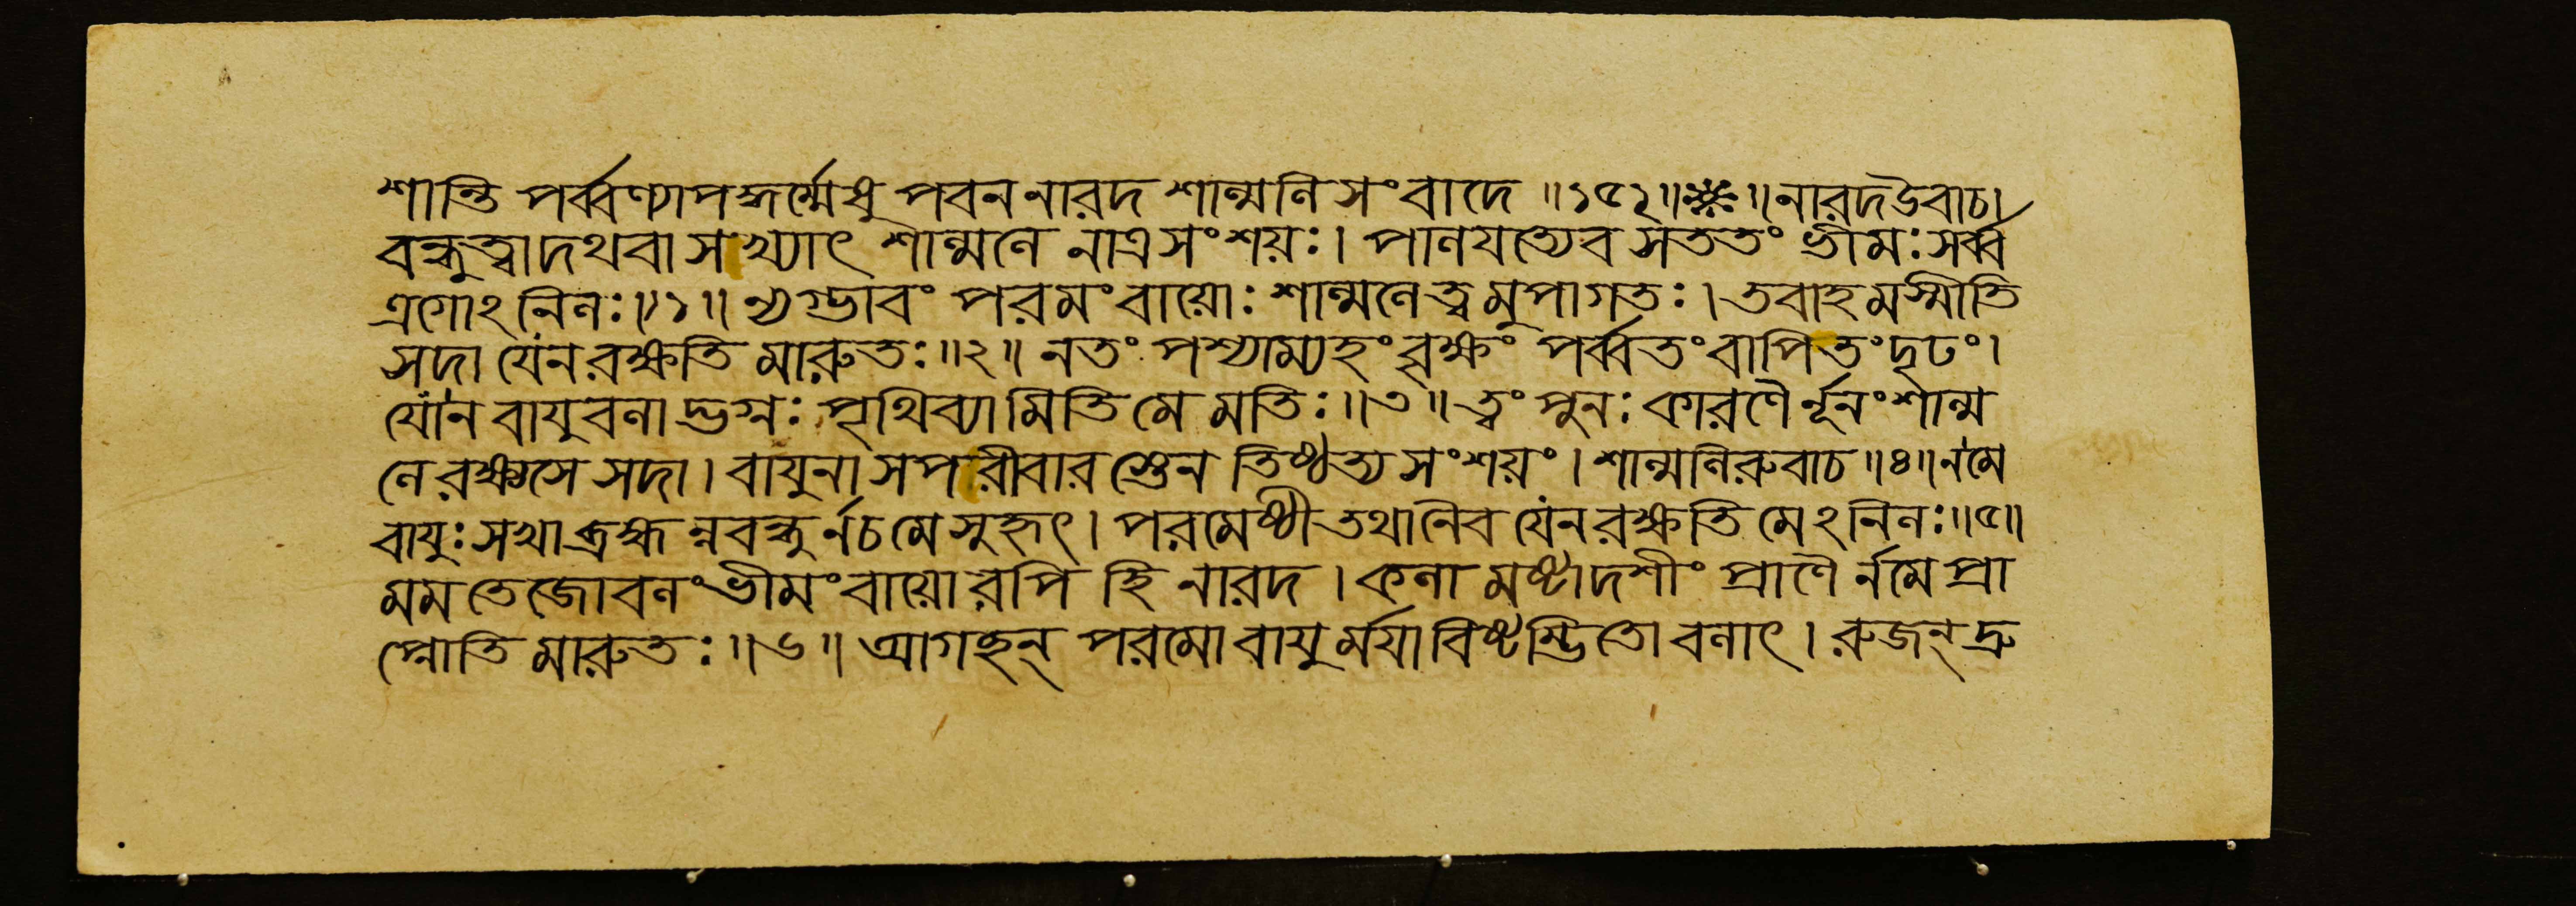 শান্তি পর্ব্বণ্যাপদ্ধর্ম্মেষু পবন নারদ শাল্মলি সংবাদে ॥১৫২॥❋॥ নারদ উবাচ।
বন্ধুত্বাদথবা সখ্যাৎ শাল্মলে নাত্র সংশয়ঃ। পালযত্যেব সততং ভীমঃ সর্ব্ব
ত্রগোঽনিলঃ॥১॥ ন্যগ্ভাবং পরমং বায়োঃ শাল্মলে ত্বমুপাগতঃ। তবাহমস্মীতি
সদা যেন রক্ষতি মারুতঃ॥২॥ ন তং পশ্যাম্যহং বৃক্ষং পর্ব্বতং বাপি তং দৃঢং।
যো ন বাযুবলাদ্ভগ্নঃ পৃথিব্যামিতি মে মতিঃ॥৩॥ ত্বং পুনঃ কারণৈর্নূনং শাল্ম
লে রক্ষ্যসে সদা। বাযুনা সপরীবারস্তেন তিষ্ঠস্য সংশয়ং। শাল্মলিরুবাচ॥৪॥ ন মে
বাযুঃ সখা ব্রহ্মন্ন বন্ধুর্ন চ মে সুহৃৎ। পরমেষ্ঠী তথা নৈব যেন রক্ষতি মেঽনিলঃ॥৫॥
মম তেজোবলং ভীমং বায়োরপি হি নারদ। কলামষ্টাদশীং প্রাণৈর্ন মে প্রা
প্নোতি মারুতঃ॥৬॥ আগচ্ছন্ পরমো বাযুর্ময়া বিষ্টম্ভিতো বলাৎ। রুজন্ দ্রু